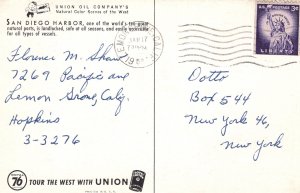 UNION OIL COMPANY'S
Natural Color Scenes of the West
SAN DIEGO HARBOR, one of the world's ten great
natural ports, is landlocked, safe at all seasons, and easily accessible
for all types of vessels.
Florence M. Shaw
7269 Pacific ave
Lemon Grove, Calif
Hopkins
3-3276
LEMON GROVE
CALIF.
3¢
LIBERTY
Dotto
Box 544
New York 46,
New York
76
TOUR THE WEST WITH UNION